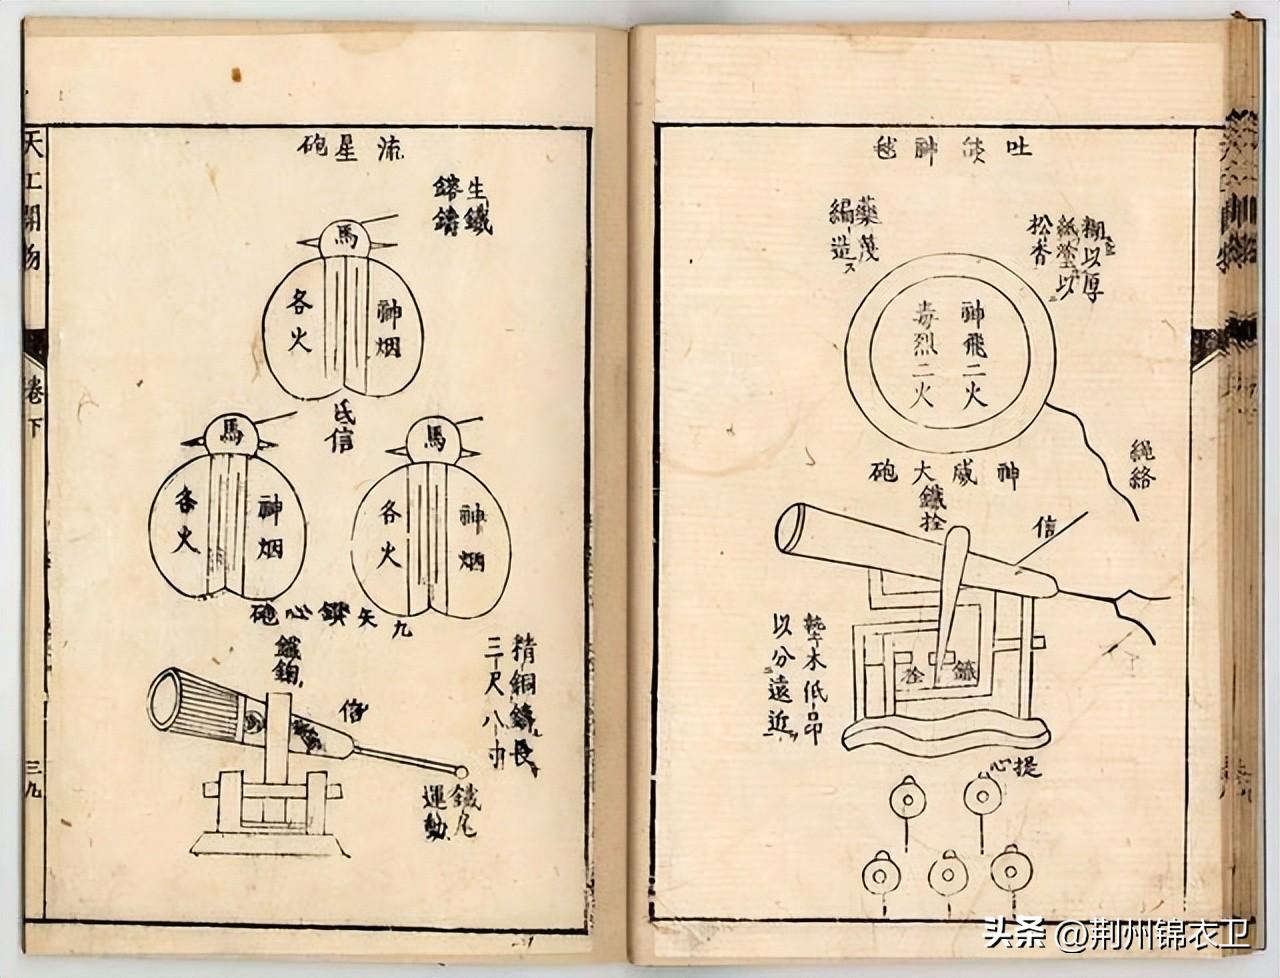 吐燄神毬
糊以厚
紙塗以
松香
藥茂
編造ス
神飛二火
毒烈二火
繩絡
神威大砲
鐵栓
信
鐵
栓
墊木低昂
以分遠近
提心
流星砲
生鐵
鎔鑄
馬
神烟
各火
信
馬
神烟
各火
馬
神烟
各火
九矢鑽心砲
精銅鑄長
三尺八寸
信
鐵尾
運動
天工開物
卷下
三九
头条 @荆州锦衣卫